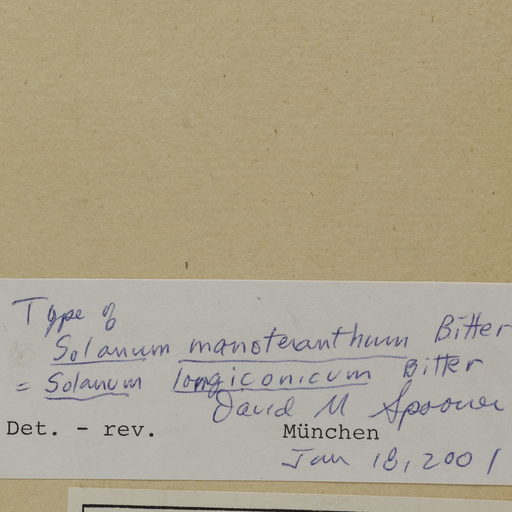 Type of
Solanum manoteranthum Bitter
= Solanum longiconicum Bitter
David M Spooner
Det. - rev. München
Jan 18, 2001